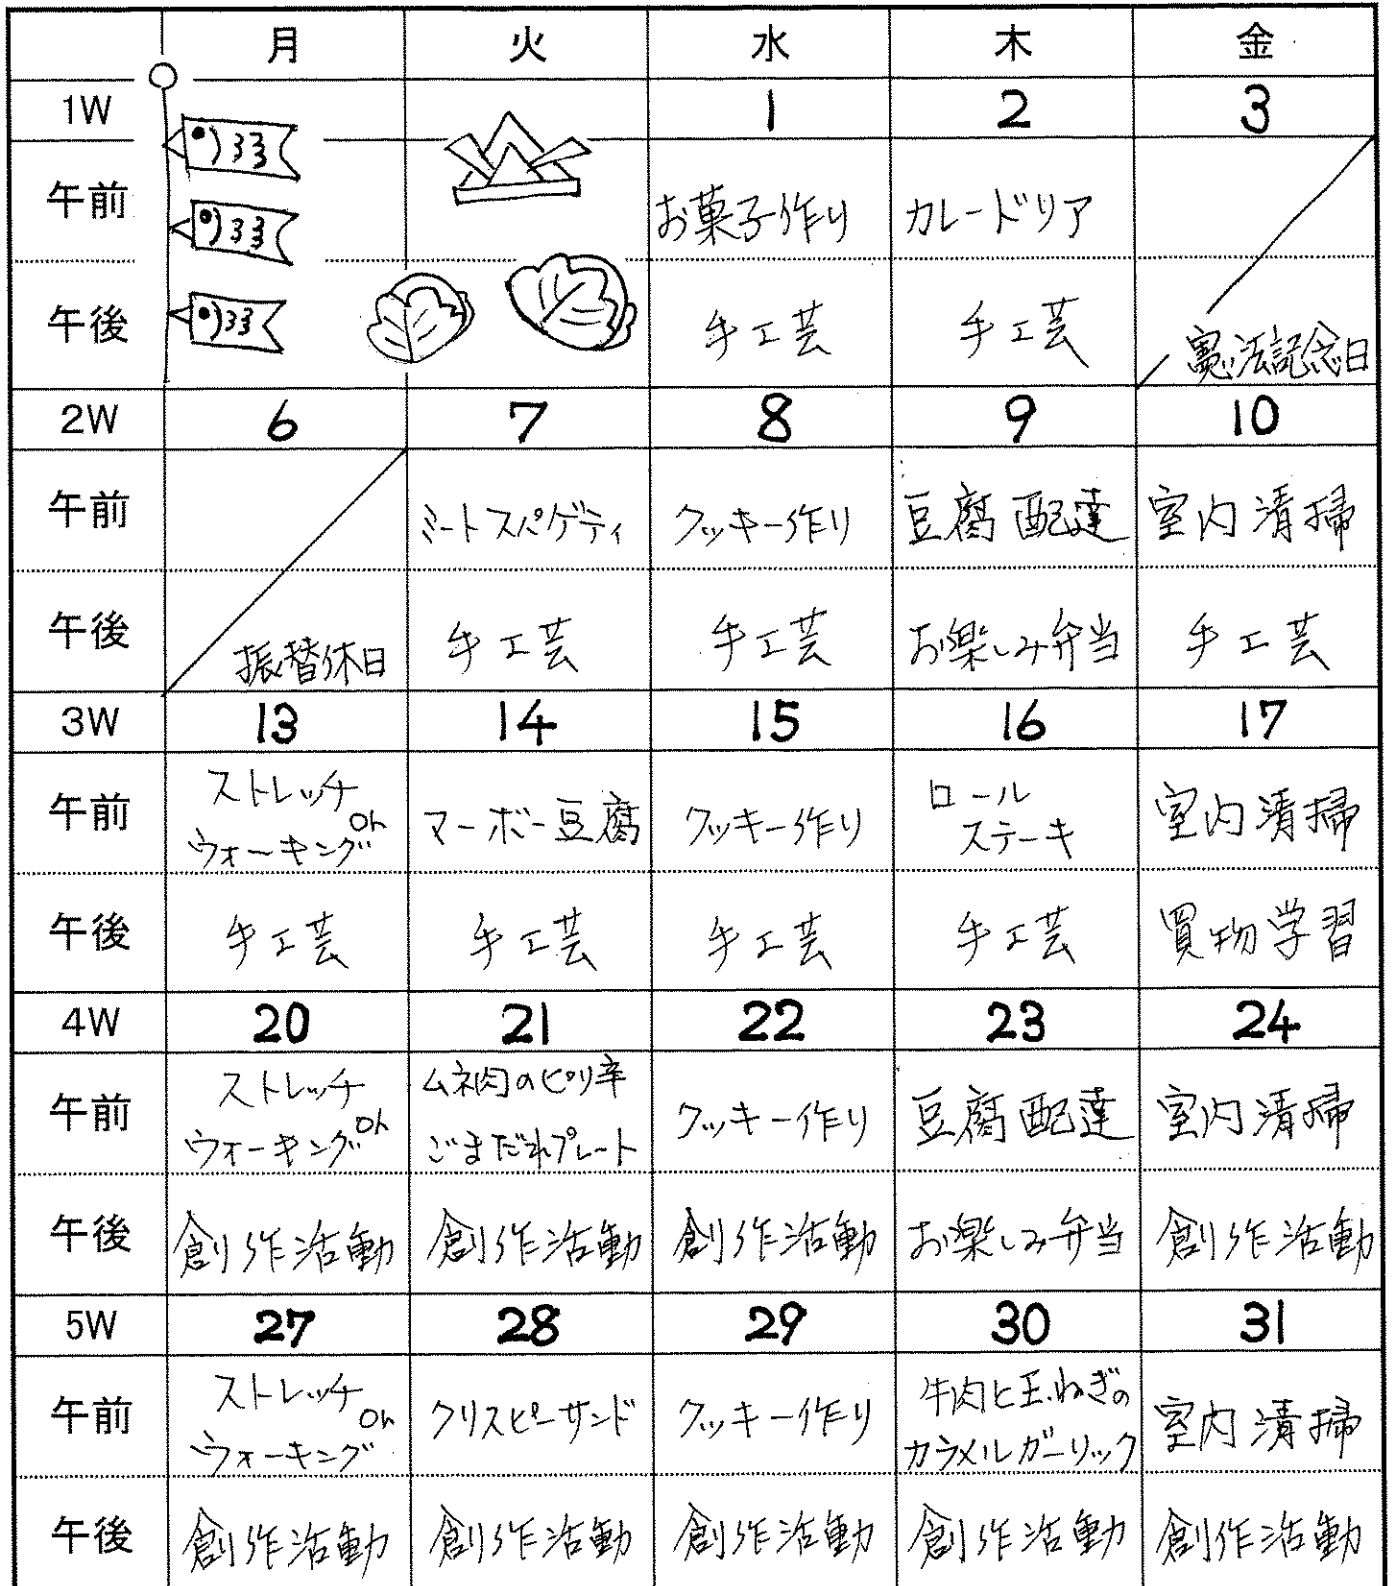 月 火 水 木 金
1W 1 2 3
午前 お菓子作り カレードリア
午後 手工芸 手工芸 憲法記念日
2W 6 7 8 9 10
午前 ミートスパゲティ クッキー作り 豆腐配達 室内清掃
午後 振替休日 手工芸 手工芸 お楽しみ弁当 手工芸
3W 13 14 15 16 17
午前 ストレッチ or ウォーキング マーボー豆腐 クッキー作り ロールステーキ 室内清掃
午後 手工芸 手工芸 手工芸 手工芸 買物学習
4W 20 21 22 23 24
午前 ストレッチ or ウォーキング ムネ肉のピリ辛ごまだれプレート クッキー作り 豆腐配達 室内清掃
午後 創作活動 創作活動 創作活動 お楽しみ弁当 創作活動
5W 27 28 29 30 31
午前 ストレッチ or ウォーキング クリスピーサンド クッキー作り 牛肉と玉ねぎのカラメルガーリック 室内清掃
午後 創作活動 創作活動 創作活動 創作活動 創作活動